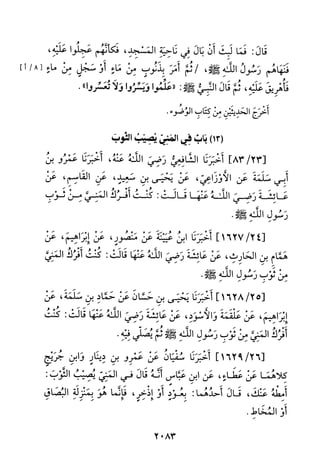 قَالَ: فَمَا لَبِثَ أَنْ بَالَ فِي نَاحِيَةِ المَسْجِدِ، فَكَأَنَّهُم عَجِلُوا عَلَيْهِ،
فَنَهَاهُم رَسُولُ اللَّهِ ﷺ، / ثُمَّ أَمَرَ بِذَنُوبٍ مِنْ مَاءٍ أَوْ سَجْلٍ مِنْ مَاءٍ [٨/أ]
فَأُهْرِيقَ عَلَيْهِ، ثُمَّ قَالَ النَّبِيُّ ﷺ: «عَلِّمُوا وَيَسِّرُوا وَلَا تُعَسِّرُوا».
أَخْرَجَ الحَدِيثَيْنِ مِنْ كِتَابِ الوُضُوءِ.
(١٣) بَابٌ فِي المَنِيِّ يُصِيْبُ الثَّوبَ
[٨٣/٢٣] أَخْبَرَنَا الشَّافِعِيُّ رَضِيَ اللَّهُ عَنْهُ، أَخْبَرَنَا عَمْرُو بنُ
أَبِي سَلَمَةَ عَن الأَوْزَاعِيِّ، عَنْ يَحْيَـى بنِ سَعِيدٍ، عَنِ القَاسِمِ، عَنْ
عَـائِشَـةَ رَضِـيَ اللَّـهُ عَنْهَـا قَـالَـتْ: كُنْـتُ أَفْـرُكُ المَنِـيَّ مِـنْ ثَـوْبِ
رَسُولِ اللَّهِ ﷺ.
[١٦٢٧/٢٤] أَخْبَرَنَا ابنُ عُيَيْنَةَ عَنْ مَنْصُورٍ، عَنْ إِبْرَاهِيمَ، عَنْ
هَمَّامِ بنِ الحَارِثِ، عَنْ عَائِشَةَ رَضِيَ اللَّهُ عَنْهَا قَالَتْ: كُنْتُ أَفْرُكُ المَنِيَّ
مِنْ ثَوْبِ رَسُولِ اللَّهِ ﷺ.
[١٦٢٨/٢٥] أَخْبَرَنَا يَحْيَـى بنُ حَسَّانَ عَنْ حَمَّادِ بنِ سَلَمَةَ، عَنْ
إِبْرَاهِيمَ، عَنْ عَلْقَمَةَ وَالأَسْوَدِ، عَنْ عَائِشَةَ رَضِيَ اللَّهُ عَنْهَا قَالَتْ: كُنْتُ
أَفْرُكُ المَنِيَّ مِنْ ثَوْبِ رَسُولِ اللَّهِ ﷺ ثُمَّ يُصَلِّي فِيْهِ.
[١٦٢٩/٢٦] أَخْبَرَنَا سُفْيَانُ عَنْ عَمْرِو بنِ دِينَارٍ وَابنِ جُرَيْجٍ
كلاهُمَـا عَنْ عَطـاءٍ، عَن ابنِ عَبَّاس أَنَّـهُ قَالَ فـي المَنِيّ يُصِيْبُ الثَّوْبَ:
أَمِطْهُ عَنْكَ، قَـالَ أَحدُهُما: بِعُـوْدٍ أَوْ إِذْخِرٍ، فَإِنَّما هُوَ بِمَنْزِلَةِ البُصَاقِ
أَوْ المُخَاطِ.
٢٠٨٣